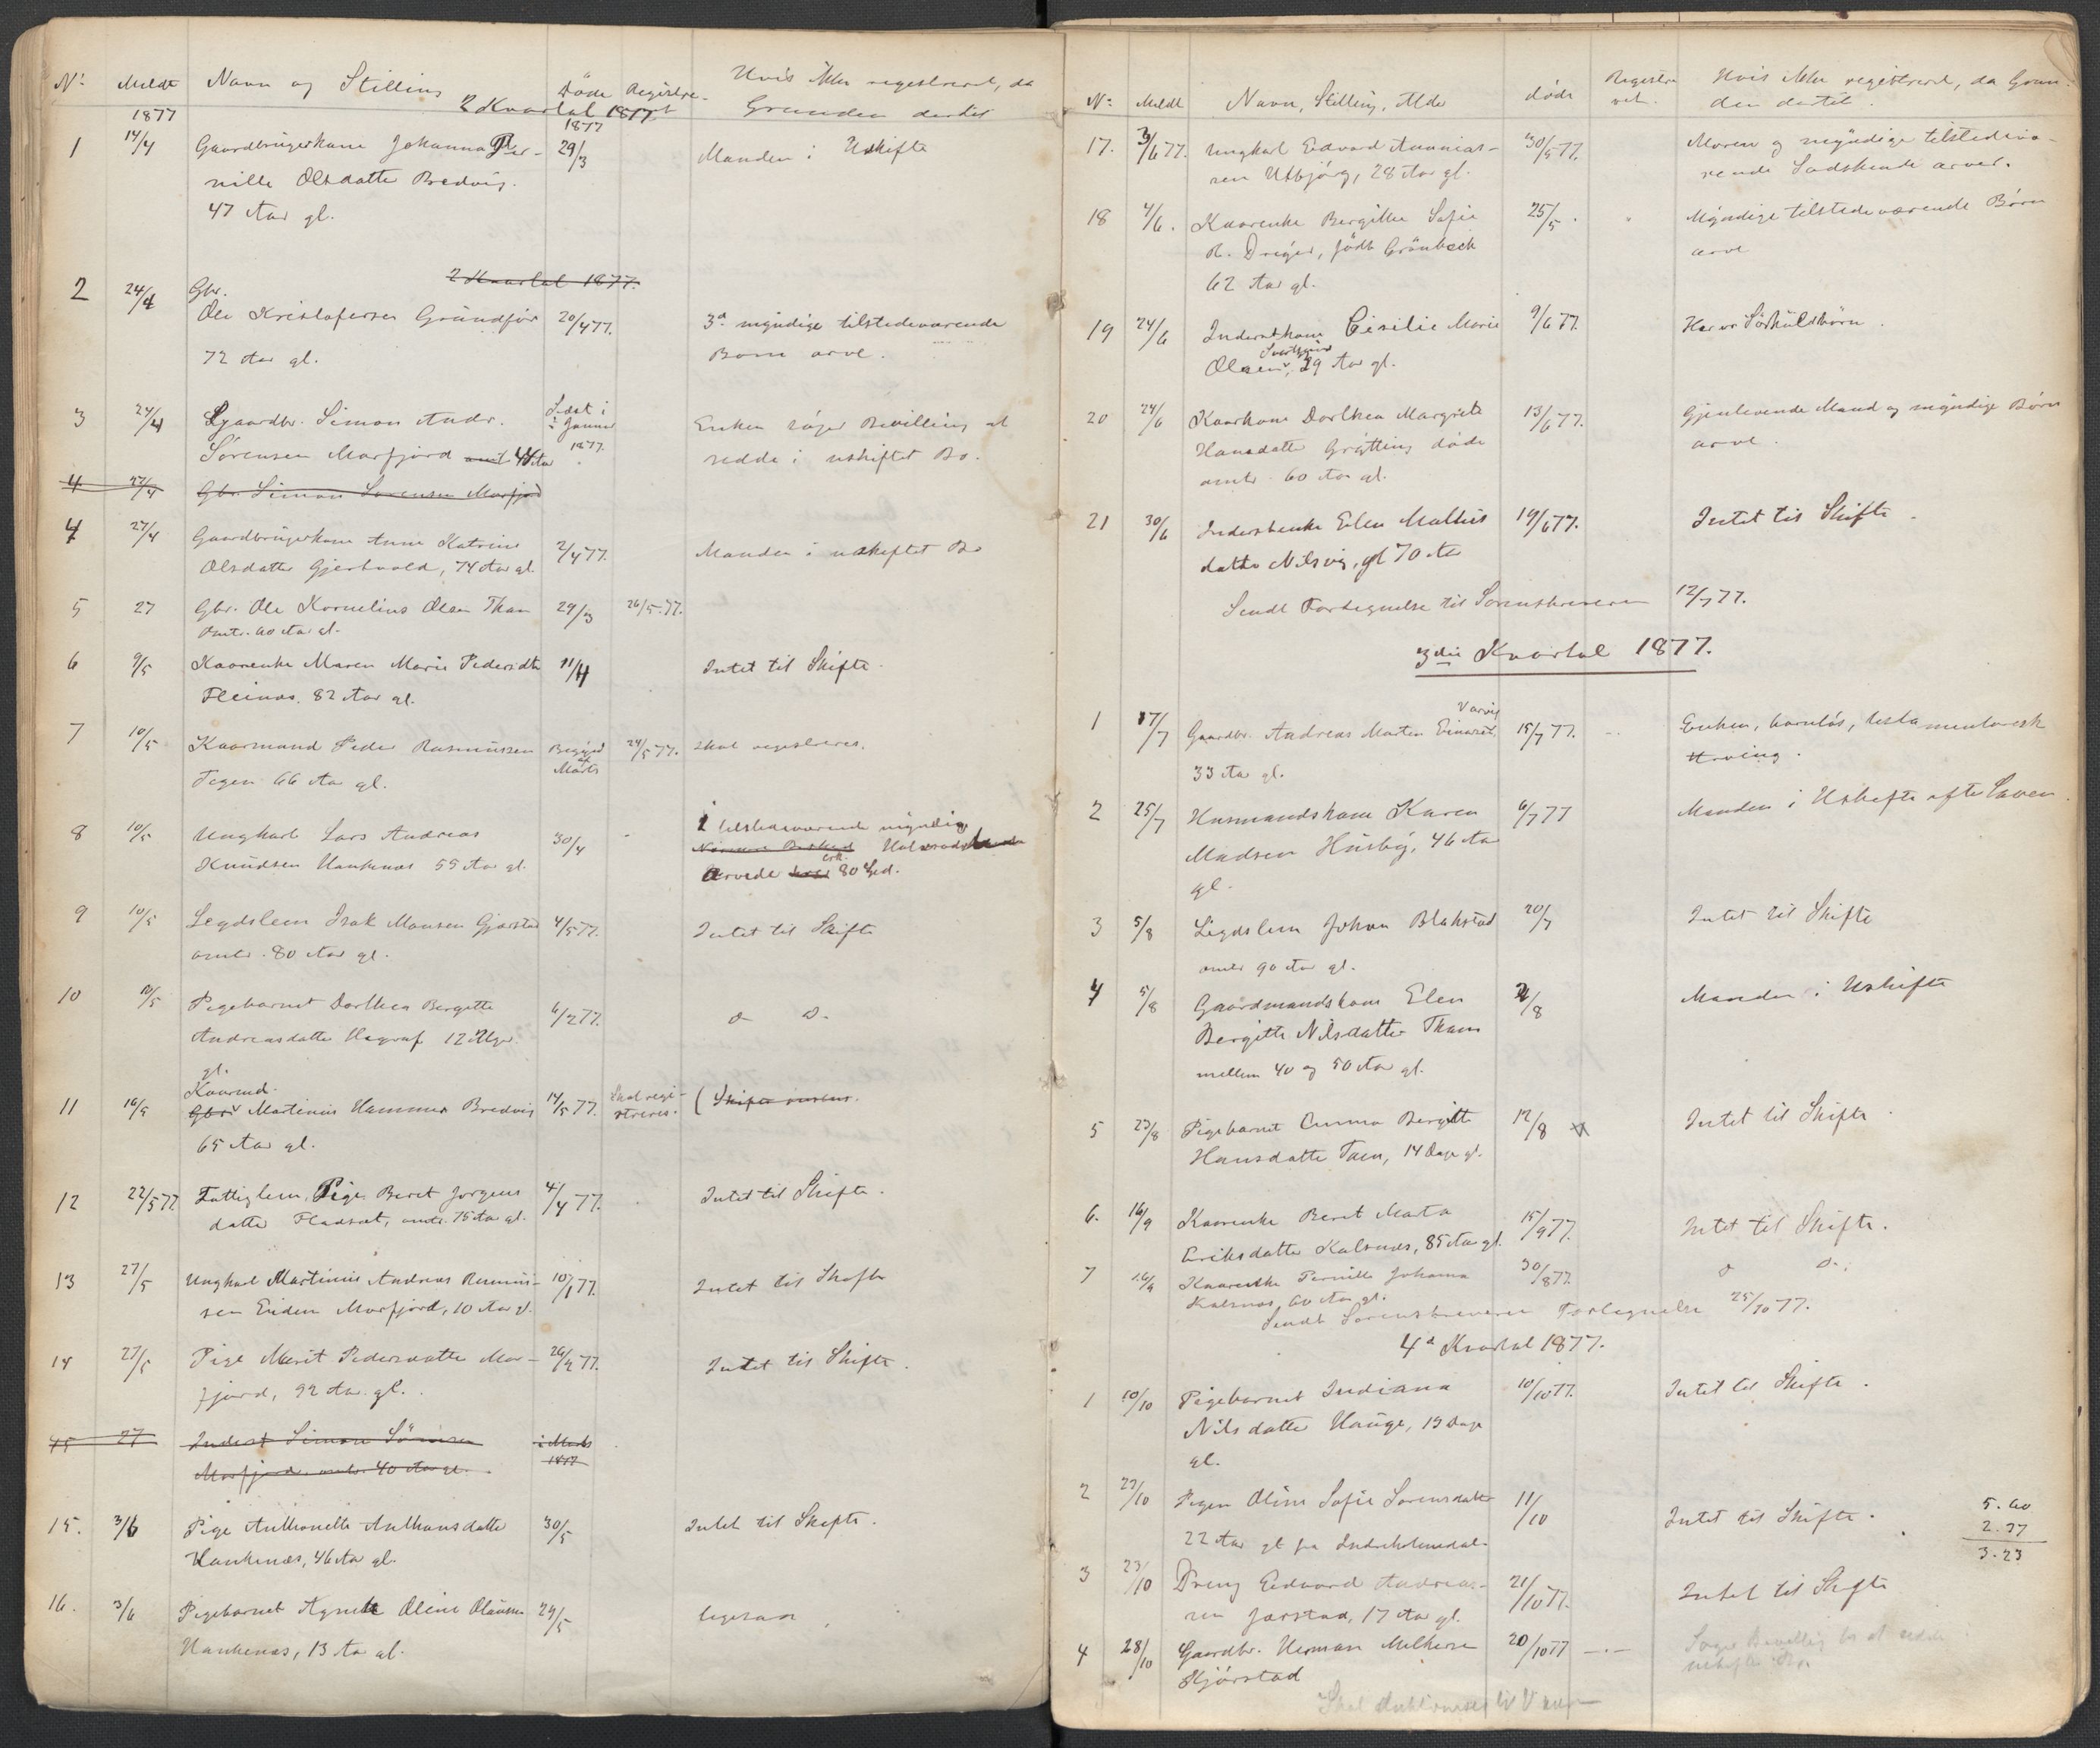 No. Meldt Navn og Stilling Døde Registre- Hvis ikke registreret, da
1877 2 Kvartal 1877 Grunden dertil
1877
1 14/4 Gaardbrugerkone Johanna Per- 29/3 Manden i Uskifte
nille Olsdatter Bredvig.
47 Aar gl.
2 Kvartal 1877.
2 24/4 Gbr.
Ole Kristofersen Grundfjør 20/4 77. 3 myndige tilstedeværende
72 Aar gl. Børn arve.
3 24/4 Gaardbr. Simon Andr. i Januar Enken søger Bevilling at
Sørensen Morfjord 44 Aar 1877. sidde i uskiftet Bo.
4 27/4 Gbr. Simon Sørensen Morfjord
4 27/4 Gaardbrugerkone Anne Katrine 2/4 77. Manden i uskiftet Bo
Olsdatter Gjerstvold, 74 Aar gl.
5 27 Gbr. Ole Kornelius Olsen Than 29/3 26/5 77.
omtr. 60 Aar gl.
6 9/5 Kaarenke Maren Marie Pedersdtr 11/4 Intet til Skifte.
Fleinæs. 82 Aar gl.
7 10/5 Kaarmand Peder Rasmussen 24/5 77. skal registreres.
Marts
66 Aar gl.
8 10/5 Ungkarl Lars Andreas 30/4 tilstedeværende myndig
Knudsen Hankenæs 55 Aar gl.
Arvede 80 Spd.
9 10/5 Legdslem Isak Monsen Gjærstad 4/5 77. Intet til Skifte
omtr. 80 Aar gl.
10 10/5 Pigebarnet Dorthea Bergitte 6/2 77. do do
Andreasdatter 12 Uger
gl.
Kaarmd.
11 16/5 Gbr. Martinus Hammer Bredvig 14/5 77. Skal regi-
65 Aar gl. streres.
12 22/5 77 Fattiglem, Pige Beret Jørgens 4/4 77. Intet til Skifte.
datter Fladsæt, omtr. 75 Aar gl.
13 27/5 Ungkarl Martinus Andreas Rasmus- 10/1 77. Intet til Skifte
sen Eiden Morfjord, 10 Aar gl.
14 27/5 Pige Marit Pedersdatter Mor- 26/2 77. Intet til Skifte.
fjord, 92 Aar gl.
15 27 Inderst Simon Sørensen i Marts
Morfjord omtr. 40 Aar gl. 1877
15. 3/6 Pige Anthonette Anthonsdatter 30/5 Intet til Skifte.
Hankenæs, 46 Aar gl.
16. 3/6 Pigebarnet Agnete Oline Olausen 29/5 ligesaa
Hankenæs, 13 Aar gl.
No. Meldt Navn, Stilling, Alder døde Registre- Hvis ikke registreret, da Grun-
ret. den dertil.
17. 3/6 77. Ungkarl Edvard Annanias- 30/5 77. Moren og myndige tilstedevæ-
sen Utbjørg, 28 Aar gl. rende Sødskende arver.
18 4/6. Kaarenke Bergitte Sofie 25/5. Myndige tilstedeværende Børn
R. Dreyer, født Grønbech arve
62 Aar gl.
19 24/6 Inderstkone Cicilie Marie 9/6 77. Særkuldbørn.
Olsen, 29 Aar gl.
20 24/6 Kaarkone Dorthea Margrete 13/6 77. Gjenlevende Mand og myndige Børn
Hansdatter Grytting døde arve.
omtr. 60 Aar gl.
21 30/6 Inderstenke Elen Mathis 19/6 77. Intet til Skifte.
datter Nilsvig, gl 70 Aar
Sendt Fortegnelse til Sorenskriveren 12/7 77.
3die Kvartal 1877.
Varvig
1 17/7 Gaardbr. Andreas Morten Einarset 15/7 77. Enken, barnløs, testamentarisk
33 Aar gl. Arving.
2 25/7 Husmandskone Karen 6/7 77 Manden i Uskifte efter Loven.
Madsen Husby, 46 Aar
gl.
3 5/8 Legdslem Johan Blakstad 20/7 Intet til Skifte
omtr 90 Aar gl.
4 5/8 Gaardmandskone Elen 2/8 Manden i Uskifte
Bergitte Nilsdatter Tharn
mellem 40 og 50 Aar gl.
5 23/8 Pigebarnet Anna Bergitte 12/8 Intet til Skifte.
Hansdatter Taen, 14 Dage gl.
6. 16/9 Kaarenke Beret Marta 15/9 77. Intet til Skifte.
Eriksdatter Kalsnæs, 85 Aar gl.
7 16/9 Kaarenke Pernille Johanna 30/8 77. do do
Kalsnæs, 60 Aar gl.
Sendt Sorenskriveren Fortegnelse 25/10 77.
4de Kvartal 1877.
1 10/10 Pigebarnet Indiana 10/10 77. Intet til Skifte.
Nilsdatter Hauge, 13 Dage
gl.
2 23/10 Pigen Oline Sofie Sørensdatter 11/10 Intet til Skifte.
22 Aar gl fra
5.60
2.37
3.23
3 23/10 Dreng Edvard Andrea- 21/10 77. Intet til Skifte
sen Jørstad, 17 Aar gl.
4 28/10 Gaardbr. Herman Melkersen 20/10 77 Søger Bevilling til at sidde
Kjørstad uskiftet Bo.
Skal